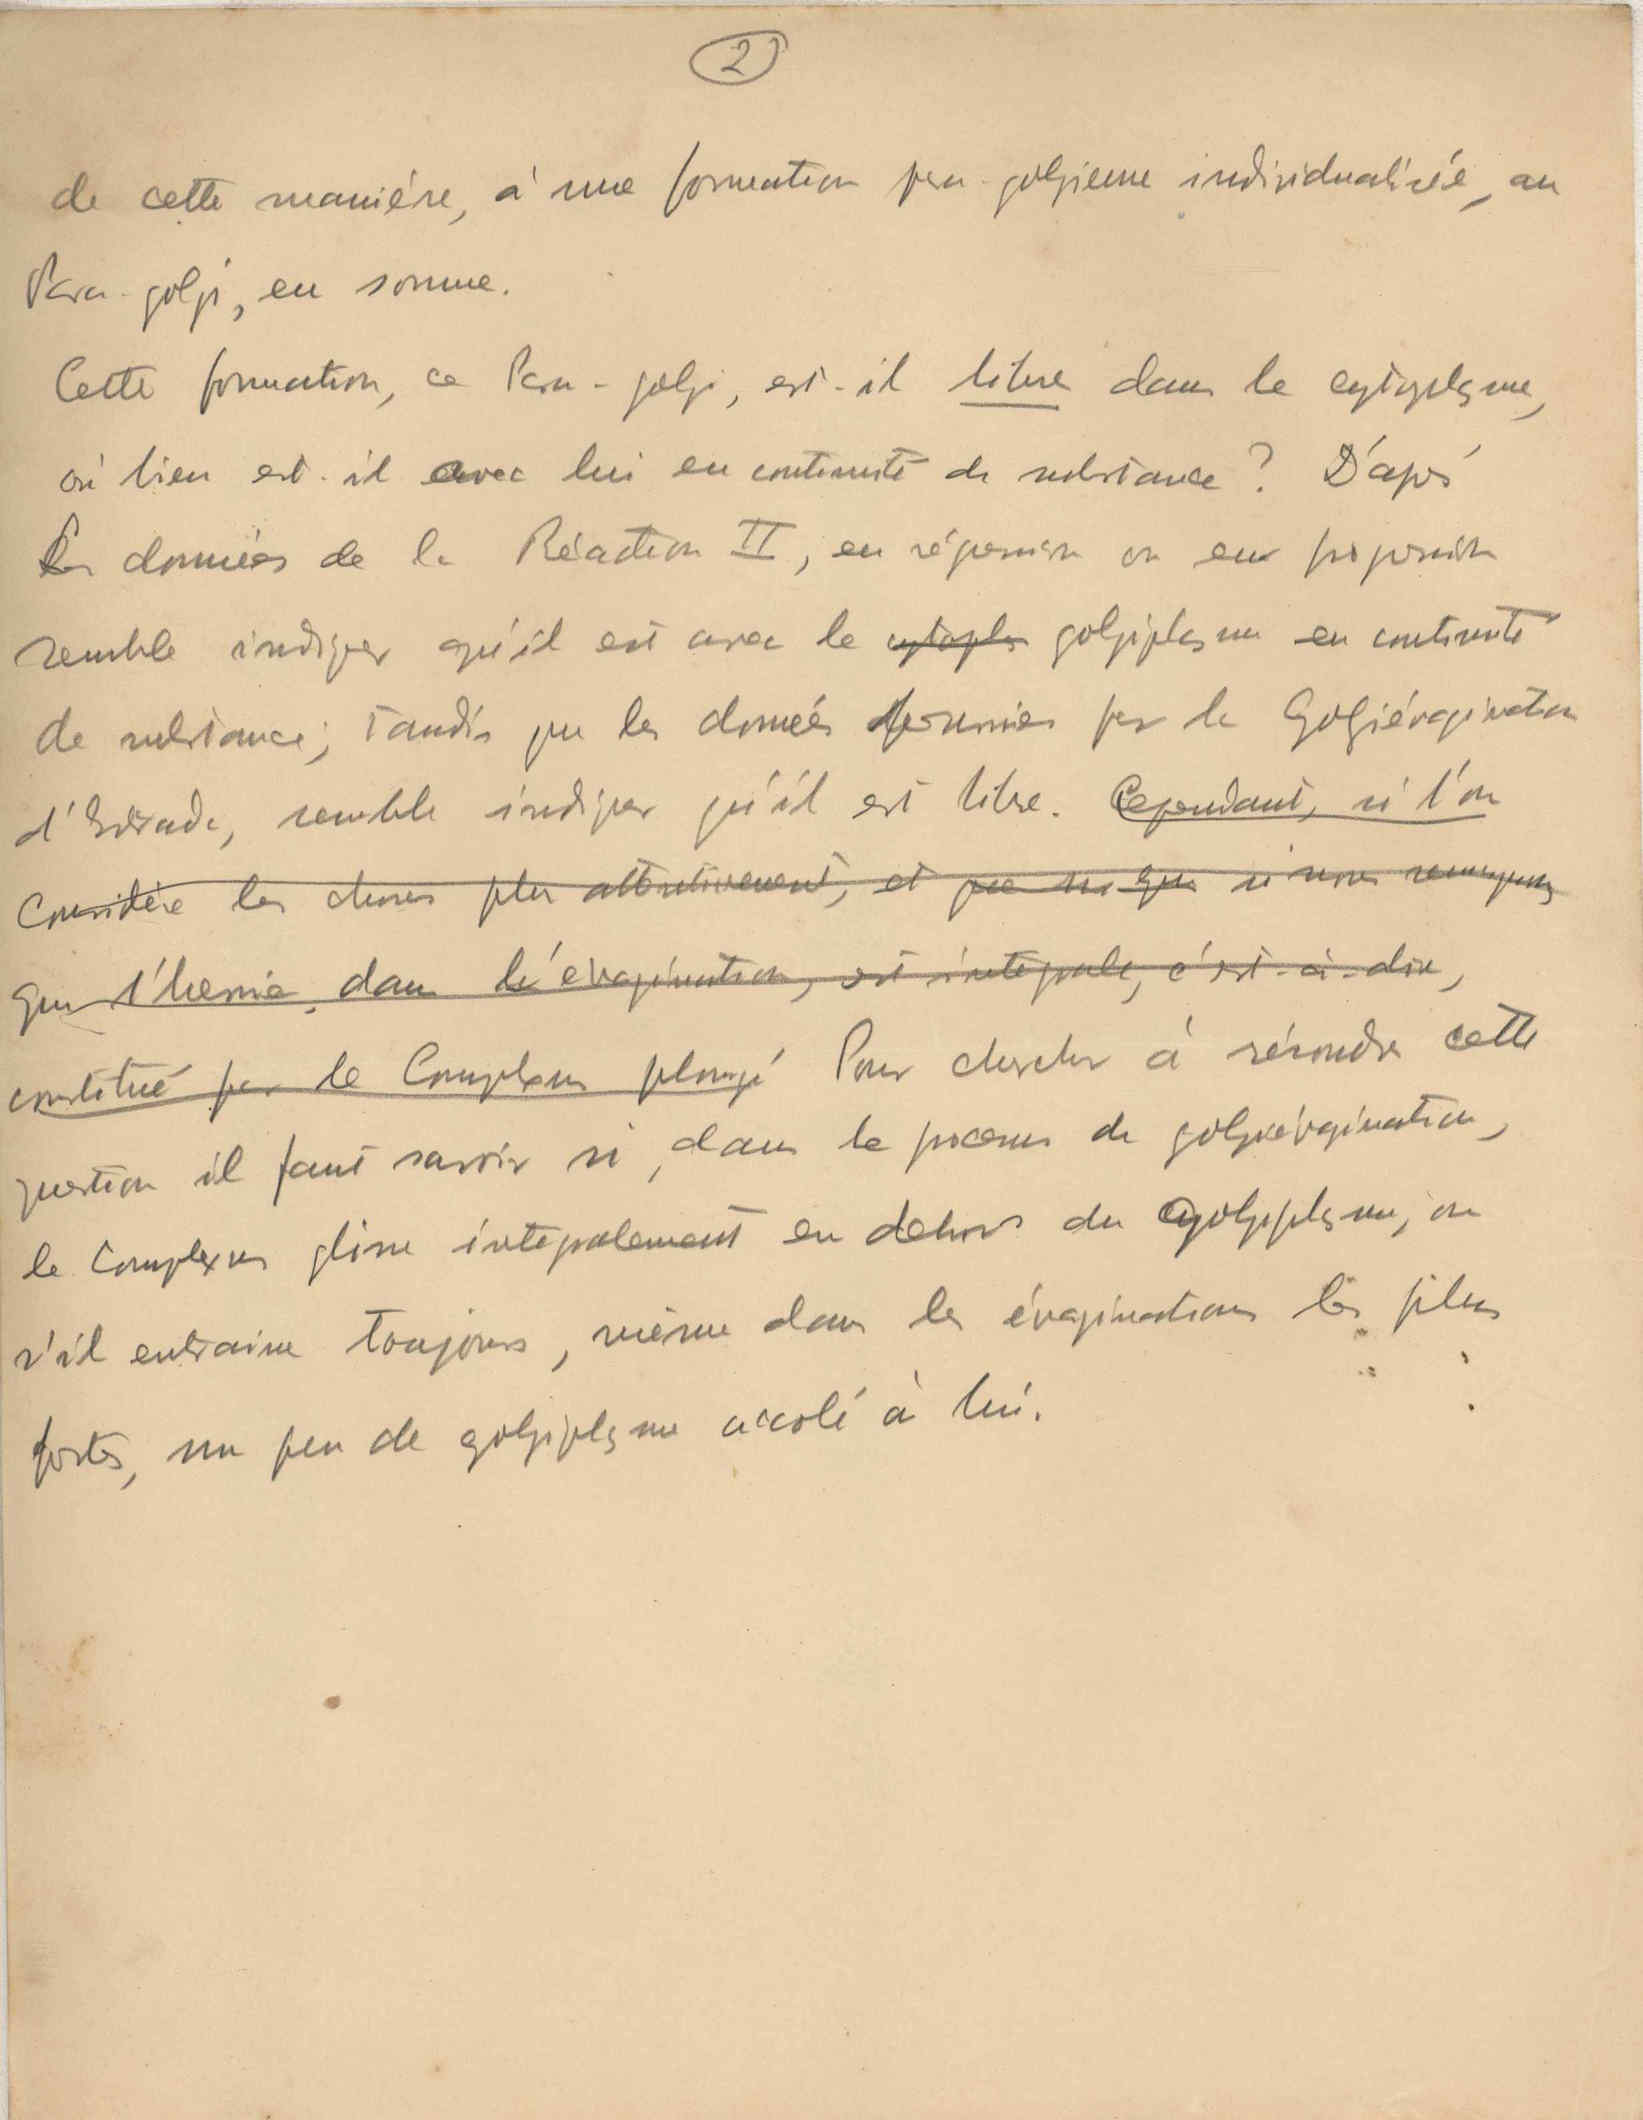 2
de cette maniére, à une formation para-golgienne individualisée, au
Para-golgi, en somme.
Cette formation, ce Para-golgi, est-il libre dans le cytoplasme,
où bien est-il avec lui en continuité de substance? D'après
les données de la Réaction II, en régression ou en
semble indiquer qu'il est avec le cytopla golgiplasme en continuité
de substance; tandis que les données fournies par la Golgiévagination
d' semble indiquer qu'il est libre. Cependant, si l'on
considère les choses plus attentivement, et que si nous remarquons
que l'hernie, dans l'évagination, est intégrale, c'est-à-dire,
constitué par le Complexus plongé Pour chercher à résoudre cette
question il faut savoir si, dans le process de golgiévagination,
le Complexus glisse intégralement en dehors du golgiplasme, ou
s'il entraine toujours, même dans les évaginations les plus
fortes, un peu de golgiplasme accolé à lui.